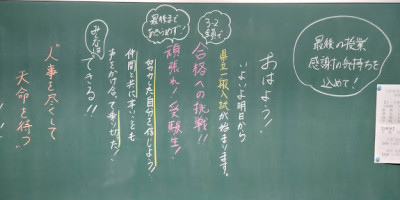 最後の授業
感謝の気持ちを
込めて!
おはよう!
いよいよ明日から
県立一般入試が始まります。
3-2
合格への挑戦!!
頑張れ!受験生!
最後まで
あきらめず!
努力した自分を信じよう!
仲間と共に
声をかけ合って乗り切った!
みんな
できる!!
"人事を尽くして
天命を待つ